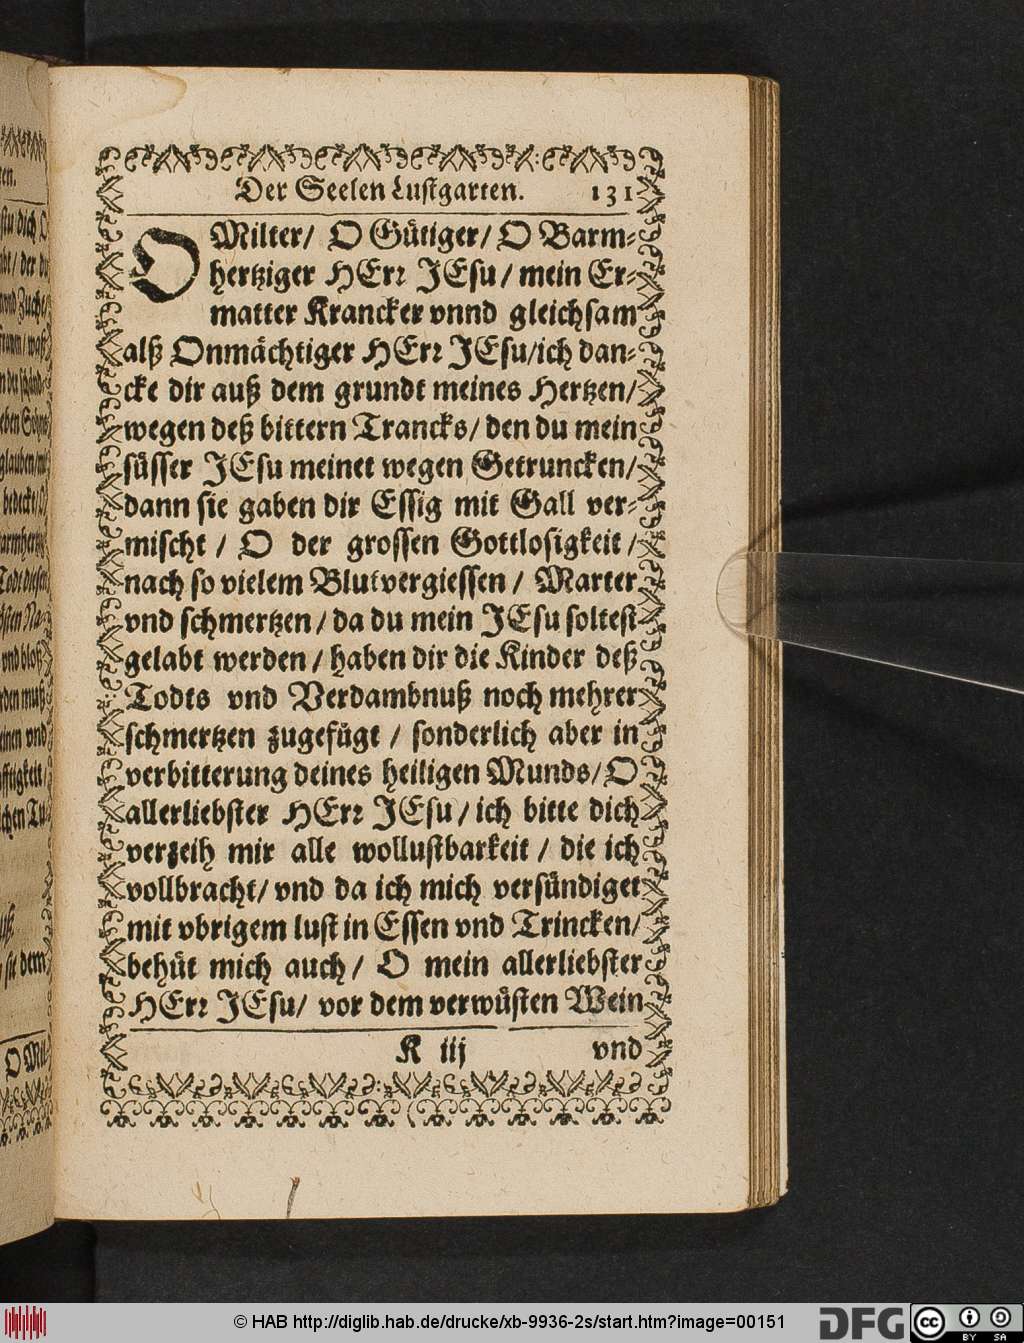 Der Seelen Lustgarten. 131
O Milter/ O Gütiger/ O Barm-
hertziger HErr JEsu/ mein Er-
matter Krancker vnnd gleichsam
alß Onmächtiger HErr JEsu/ich dan-
cke dir auß dem grundt meines Hertzen/
wegen deß bittern Trancks/ den du mein
süsser JEsu meinet wegen Getruncken/
dann sie gaben dir Essig mit Gall ver-
mischt / O der grossen Gottlosigkeit /
nach so vielem Blutvergiessen / Marter
vnd schmertzen / da du mein JEsu soltest
gelabt werden / haben dir die Kinder deß
Todts vnd Verdambnuß noch mehrer
schmertzen zugefügt / sonderlich aber in
verbitterung deines heiligen Munds/ O
allerliebster HErr JEsu / ich bitte dich
verzeih mir alle wollustbarkeit / die ich
vollbracht/ vnd da ich mich versündiget
mit vbrigem lust in Essen vnd Trincken/
behüt mich auch / O mein allerliebster
HErr JEsu/ vor dem verwüsten Wein
K iij vnd
© HAB http://diglib.hab.de/drucke/xb-9936-2s/start.htm?image=00151
DFG
cc BY SA